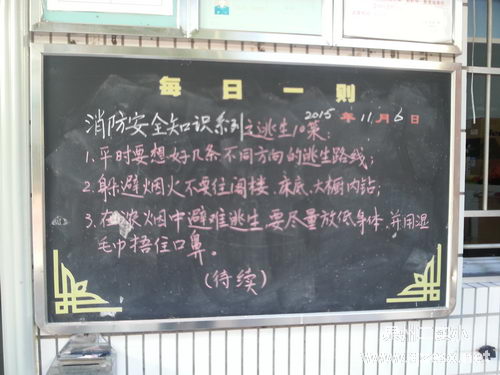 每日一则
2015年11月6日
消防安全知识系列之逃生10策:
1.平时要想好几条不同方向的逃生路线;
2.躲避烟火不要往阁楼、床底、大橱内钻;
3.在浓烟中避难逃生,要尽量放低身体,并用湿
毛巾捂住口鼻。
(待续)